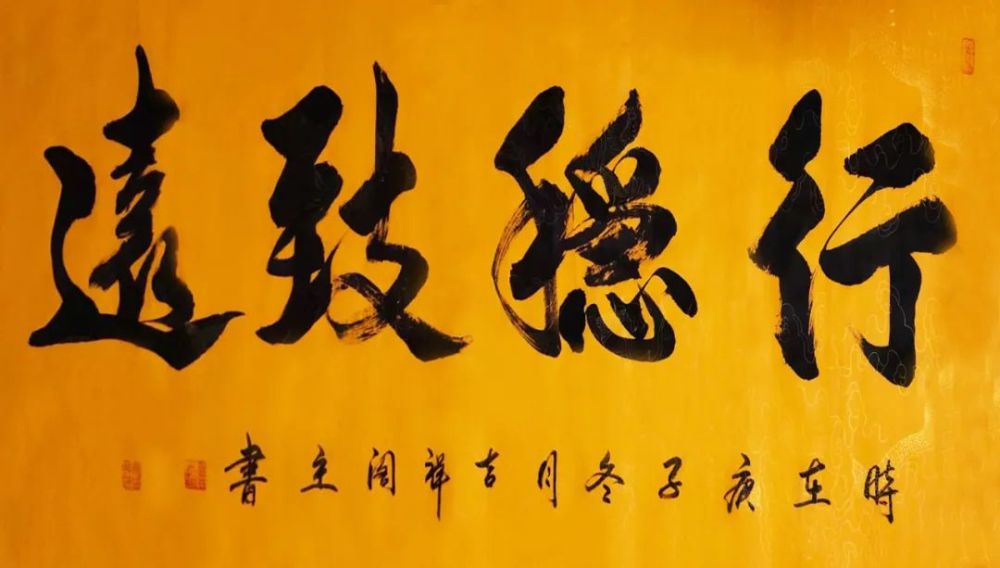 行穩致遠
時在庚子冬月吉祥阁主書